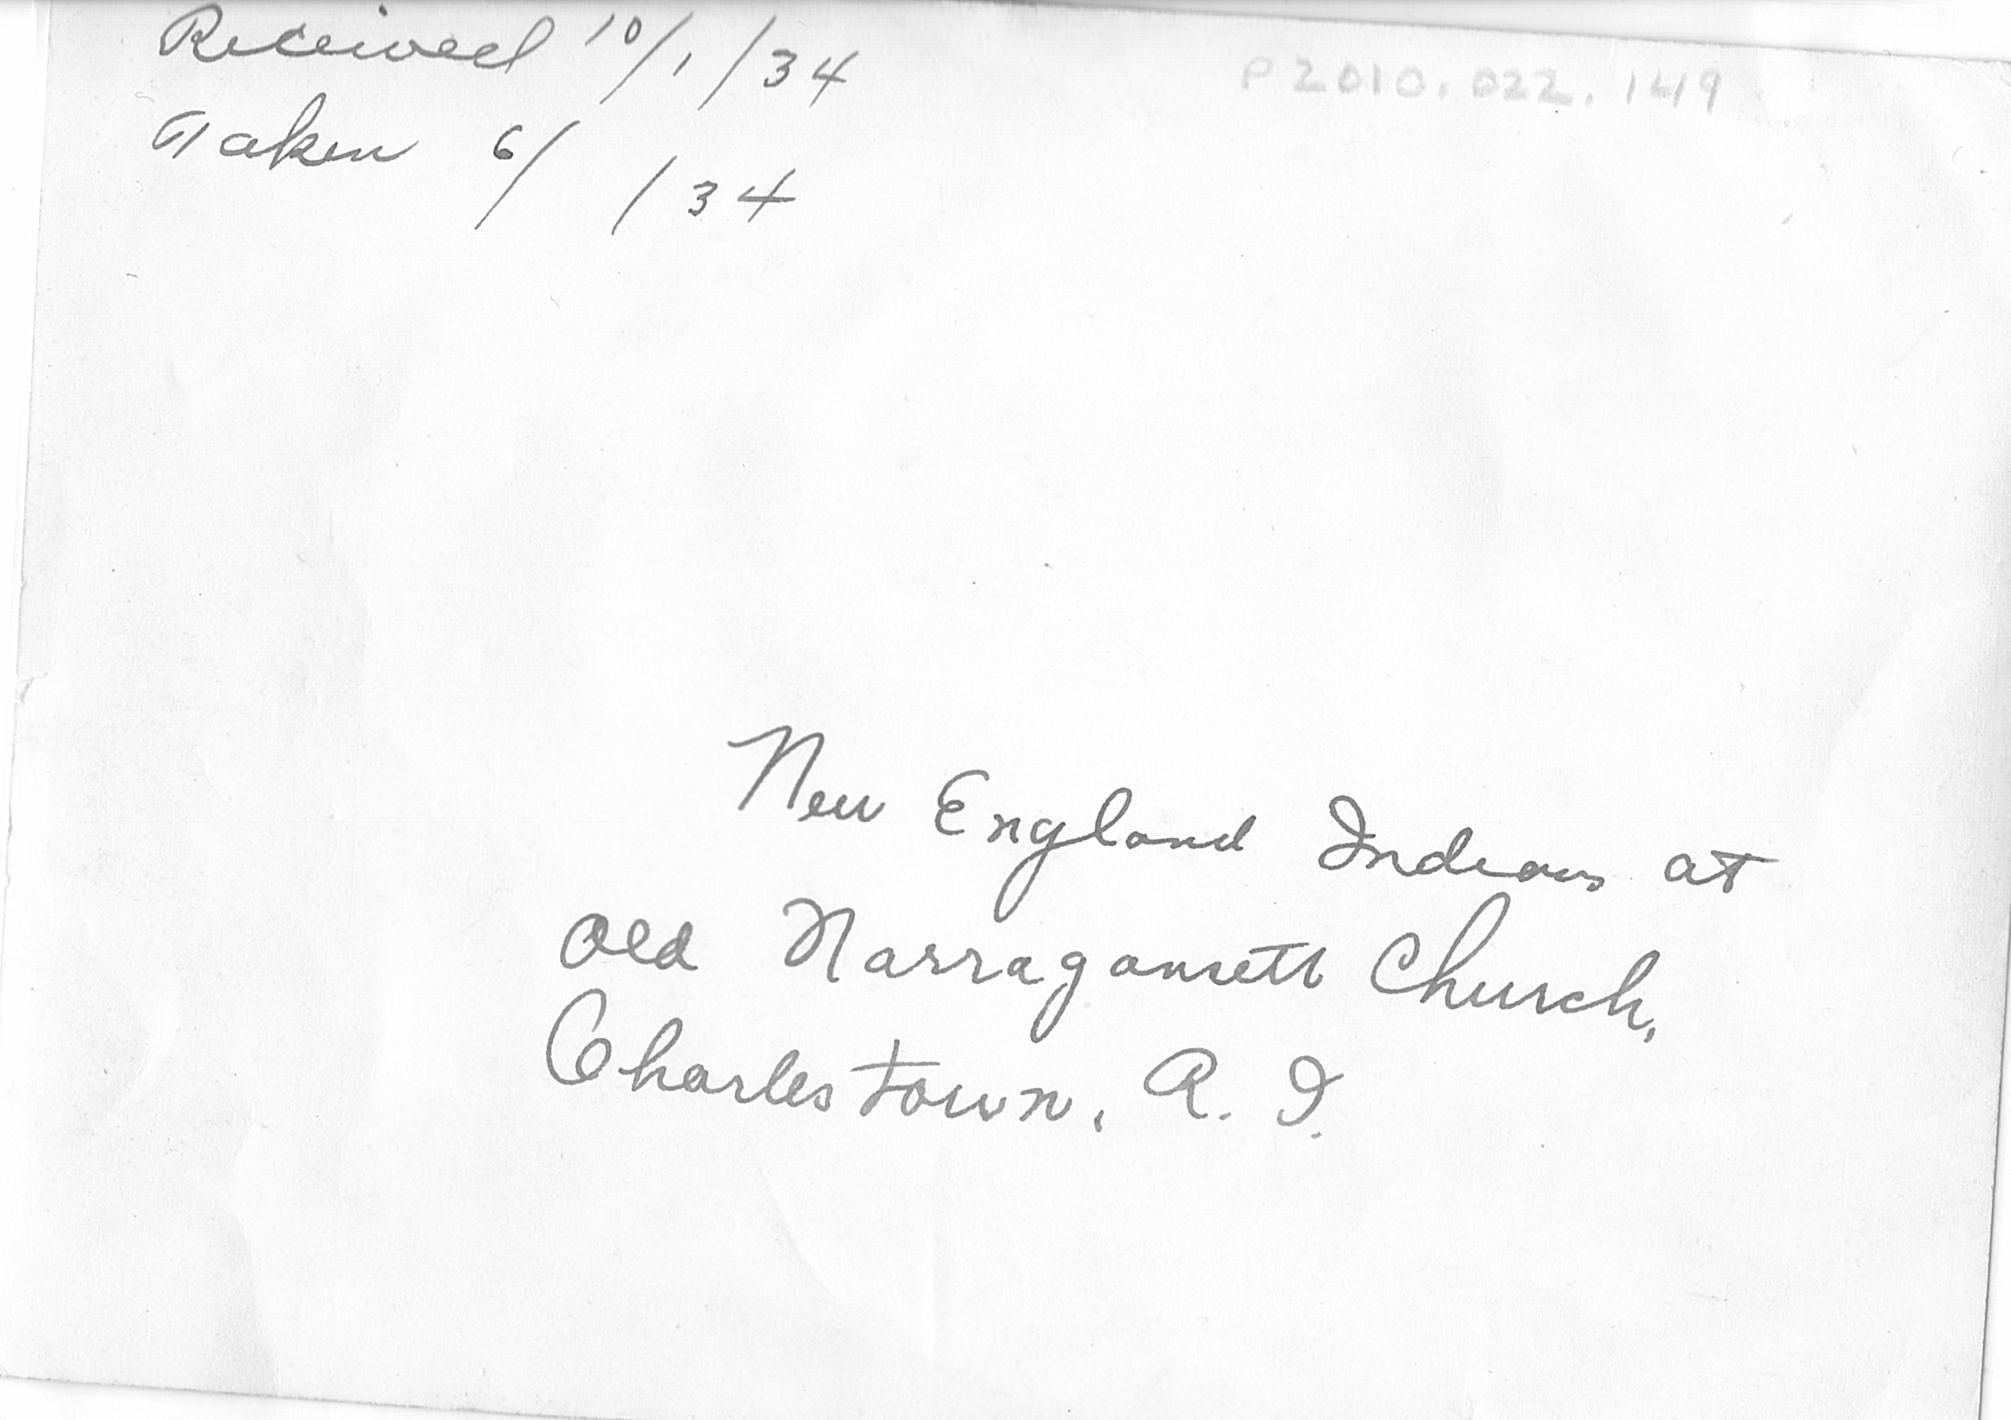 Received 10/1/34
P2010.022.149
Taken 6/ /34
New England Indians at
old Narragansett Church,
Charlestown, R. I.